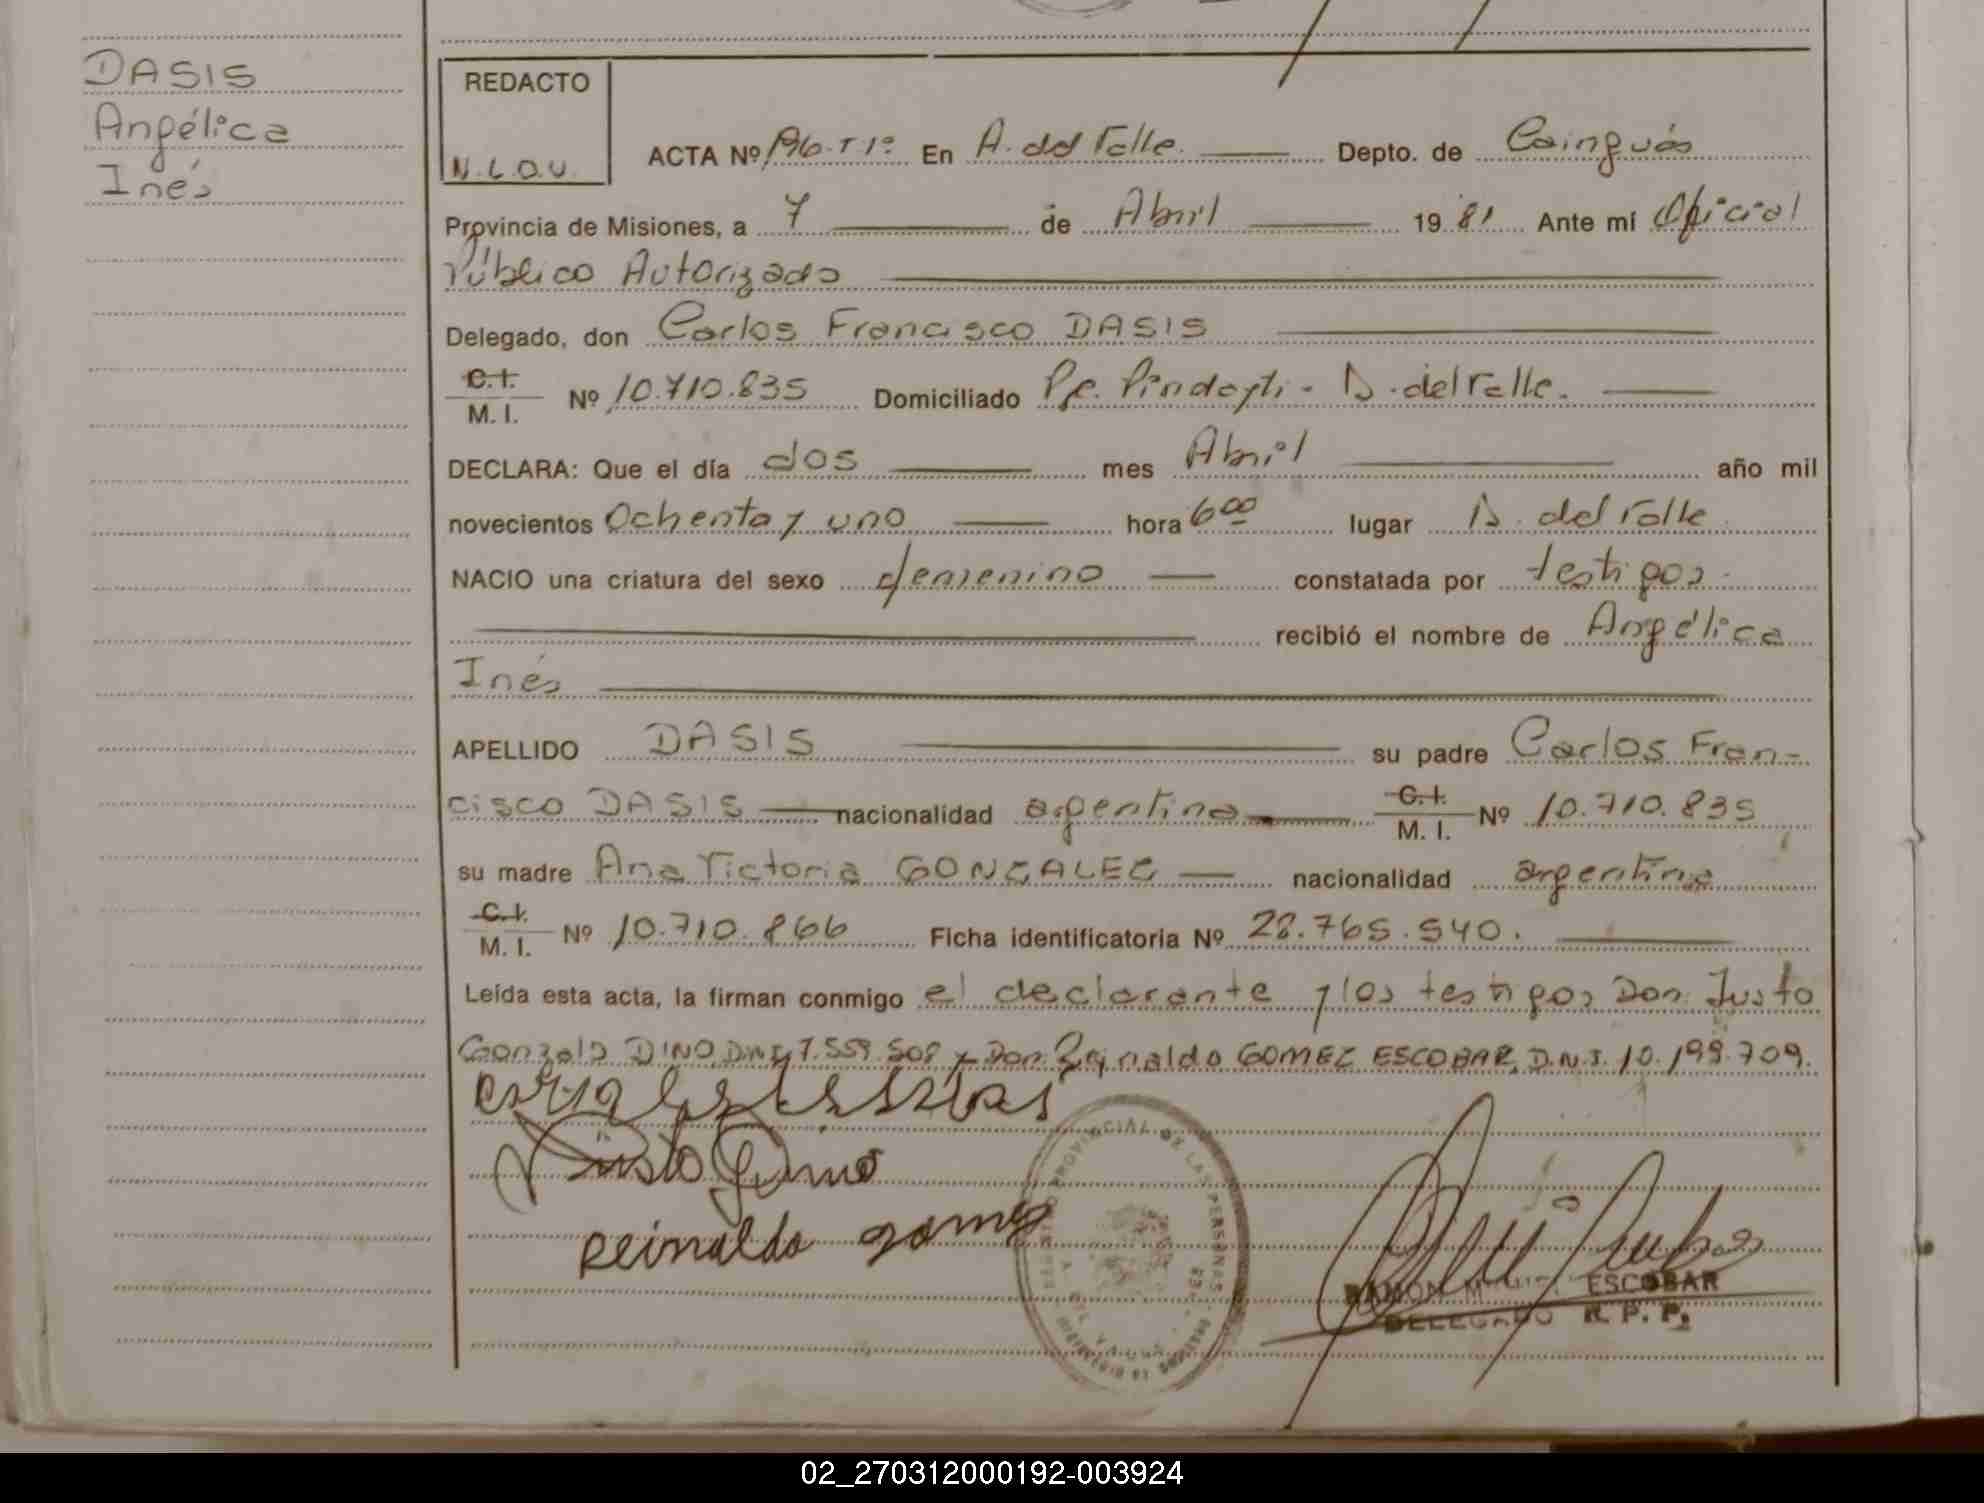 DASIS
Angélica
Inés
REDACTO
N.L.O.U.
ACTA Nº 196-T 1º En A. del Valle. Depto. de Cainguás
Provincia de Misiones, a 7 de Abril 1981 Ante mí Oficial
Público Autorizado
Delegado, don Carlos Francisco DASIS
C.I. / M.I. Nº 10.710.835 Domiciliado Pje. Pindayti - A. del Valle.
DECLARA: Que el día dos mes Abril año mil
novecientos Ochenta y uno hora 6 00 lugar A. del Valle
NACIO una criatura del sexo femenino constatada por testigos.
recibió el nombre de Angélica
Inés
APELLIDO DASIS su padre Carlos Fran-
cisco DASIS nacionalidad argentina C.I. / M.I. Nº 10.710.835
su madre Ana Victoria GONZALEZ nacionalidad argentina
C.I. / M.I. Nº 10.710.866 Ficha identificatoria Nº 28.765.540.
Leída esta acta, la firman conmigo el declarante y los testigos Don Justo
Gonzalo DINO, D.N.I. 7.559.508 y Don Reinaldo GOMEZ ESCOBAR, D.N.I. 10.199.709.
Reinaldo gomez
REGISTRO PROVINCIAL DE LAS PERSONAS
A. DEL VALLE
RAMON MIGUEL ESCOBAR
DELEGADO R.P.P.
02_270312000192-003924